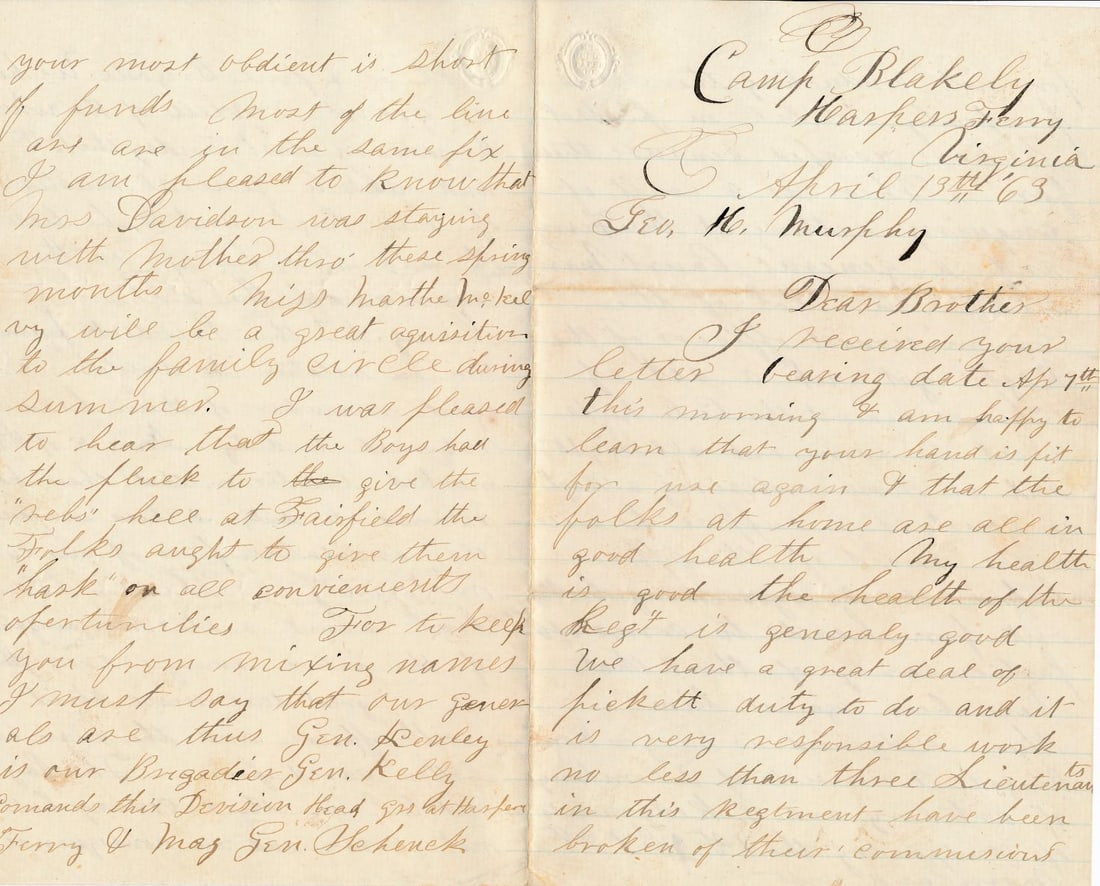 Camp Blakely
Harpers Ferry
Virginia
April 13th '63
Geo. H. Murphy
Dear Brother
I received your
letter bearing date Ap 7th
this morning & am happy to
learn that your hand is fit
for use again & that the
folks at home are all in
good health My health
is good the health of the
Regt is generaly good
We have a great deal of
pickett duty to do and it
is very responsible work
no less than three Lieutenants
in this Regtment have been
broken of their commisions
your most obdient is short
of funds Most of the line
are are in the same fix
I am pleased to know that
Mrs Davidson was staying
with Mother thro' these spring
months Miss Marthe McKel
vy will be a great aquisition
to the family circle during
summer. I was pleased
to hear that the Boys had
the pluck to the give the
"rebs" hell at Fairfield the
Folks aught to give them
"hask" on all convienients
opertunities For to keep
you from mixing names
I must say that our Gener
als are thus Gen. Kenley
is our Brigadier Gen. Kelly
Comands this Devision Head qrs at Harpers
Ferry & Mag Gen. Schenck